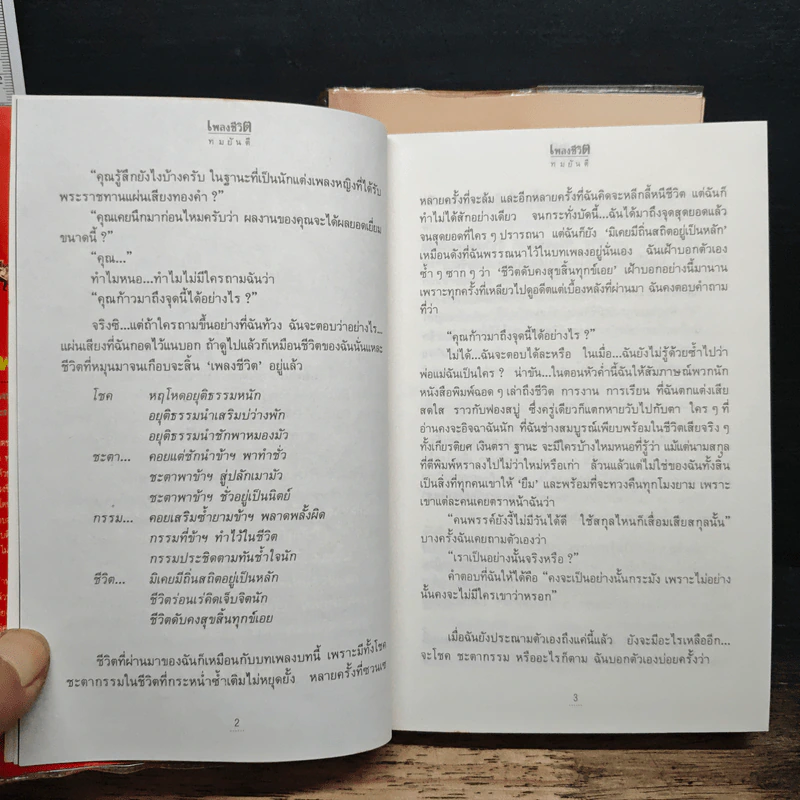 เพลงชีวิต
ทมยันตี
“คุณรู้สึกยังไงบ้างครับ ในฐานะที่เป็นนักแต่งเพลงหญิงที่ได้รับ
พระราชทานแผ่นเสียงทองคำ ?”
“คุณเคยนึกมาก่อนไหมครับว่า ผลงานของคุณจะได้ผลยอดเยี่ยม
ขนาดนี้ ?”
“คุณ...”
ทำไมหนอ...ทำไมไม่มีใครถามฉันว่า
“คุณก้าวมาถึงจุดนี้ได้อย่างไร ?”
จริงซิ...แต่ถ้าใครถามขึ้นอย่างที่ฉันท้วง ฉันจะตอบว่าอย่างไร...
แผ่นเสียงที่ฉันกอดไว้แนบอก ถ้าดูไปแล้วก็เหมือนชีวิตของฉันนั่นแหละ
ชีวิตที่หมุนมาจนเกือบจะสิ้น ‘เพลงชีวิต’ อยู่แล้ว
โชค หฤโหดอยุติธรรมหนัก
อยุติธรรมนำเสริมบ่ว่างพัก
อยุติธรรมนำชักพาหมองมัว
ชะตา... คอยแต่ชักนำข้าฯ พาทำชั่ว
ชะตาพาข้าฯ สู่ปลักเมามัว
ชะตาพาข้าฯ ชั่วอยู่เป็นนิตย์
กรรม... คอยเสริมซ้ำยามข้าฯ พลาดพลั้งผิด
กรรมที่ข้าฯ ทำไว้ในชีวิต
กรรมประชิดตามทันช้ำใจนัก
ชีวิต... มิเคยมีถิ่นสถิตอยู่เป็นหลัก
ชีวิตร่อนเร่คิดเจ็บจิตนัก
ชีวิตดับคงสุขสิ้นทุกข์เอย
ชีวิตที่ผ่านมาของฉันก็เหมือนกับบทเพลงบทนี้ เพราะมีทั้งโชค
ชะตากรรมในชีวิตที่กระหน่ำซ้ำเติมไม่หยุดยั้ง หลายครั้งที่ซวนเซ
2
เพลงชีวิต
ทมยันตี
หลายครั้งที่จะล้ม และอีกหลายครั้งที่ฉันคิดจะหลีกลี้หนีชีวิต แต่ฉันก็
ทำไม่ได้สักอย่างเดียว จนกระทั่งบัดนี้...ฉันได้มาถึงจุดสุดยอดแล้ว
จนสุดยอดที่ใคร ๆ ปรารถนา แต่ฉันก็ยัง ‘มิเคยมีถิ่นสถิตอยู่เป็นหลัก’
เหมือนดังที่ฉันพรรณนาไว้ในบทเพลงอยู่นั่นเอง ฉันเฝ้าบอกตัวเอง
ซ้ำ ๆ ซาก ๆ ว่า ‘ชีวิตดับคงสุขสิ้นทุกข์เอย’ เฝ้าบอกอย่างนี้มานาน
เพราะทุกครั้งที่เหลียวไปดูอดีตแต่เบื้องหลังที่ผ่านมา ฉันคงตอบคำถาม
ที่ว่า
“คุณก้าวมาถึงจุดนี้ได้อย่างไร ?”
ไม่ได้...ฉันจะตอบได้ละหรือ ในเมื่อ...ฉันยังไม่รู้ด้วยซ้ำไปว่า
พ่อแม่ฉันเป็นใคร ? น่าขัน...ในตอนหัวค่ำนี้ฉันให้สัมภาษณ์พวกนัก
หนังสือพิมพ์ฉอด ๆ เล่าถึงชีวิต การงาน การเรียน ที่ฉันตกแต่งเสีย
สดใส ราวกับฟองสบู่ ซึ่งครู่เดียวก็แตกหายวับไปกับตา ใคร ๆ ที่
อ่านคงจะอิจฉาฉันนัก ที่ฉันช่างสมบูรณ์เพียบพร้อมในชีวิตเสียจริง ๆ
ทั้งเกียรติยศ เงินตรา ฐานะ จะมีใครบ้างไหมหนอที่รู้ว่า แม้แต่นามสกุล
ที่ตีพิมพ์หราลงไปไม่ว่าใหม่หรือเก่า ล้วนแล้วแต่ไม่ใช่ของฉันทั้งสิ้น
เป็นสิ่งที่ทุกคนเขาให้ ‘ยืม’ และพร้อมที่จะทวงคืนทุกโมงยาม เพราะ
เขาแต่ละคนเคยตราหน้าฉันว่า
“คนพรรค์ยังงี้ไม่มีวันได้ดี ใช้สกุลไหนก็เสื่อมเสียสกุลนั้น”
บางครั้งฉันเคยถามตัวเองว่า
“เราเป็นอย่างนั้นจริงหรือ ?”
คำตอบที่ฉันให้ได้คือ “คงจะเป็นอย่างนั้นกระมัง เพราะไม่อย่าง
นั้นคงจะไม่มีใครเขาว่าหรอก”
เมื่อฉันยังประณามตัวเองถึงแค่นี้แล้ว ยังจะมีอะไรเหลืออีก...
จะโชค ชะตากรรม หรืออะไรก็ตาม ฉันบอกตัวเองบ่อยครั้งว่า
3